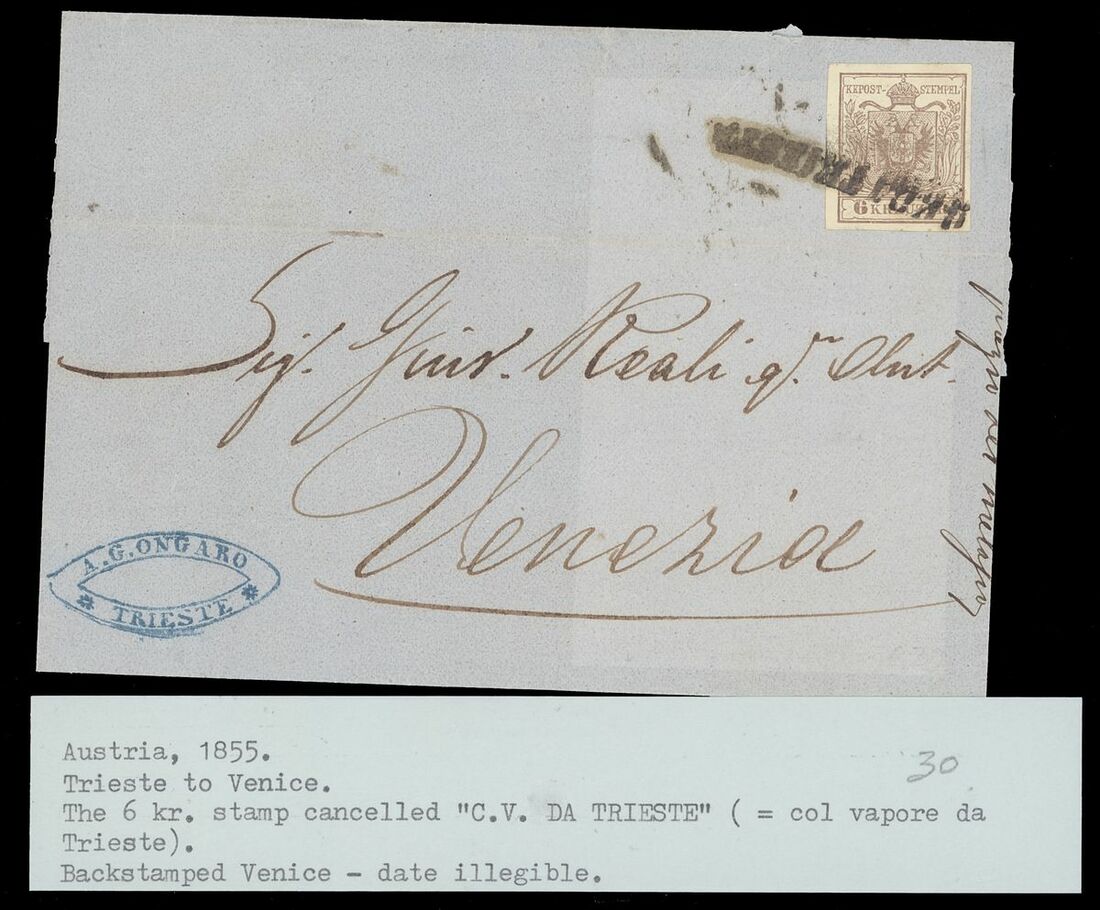 KKPOST- STEMPEL
6 KREUZER
Sig. Gius. Reali q.m Ant.
Venezia
A. G. ONGARO
* TRIESTE *
Austria, 1855.
30
Trieste to Venice.
The 6 kr. stamp cancelled "C.V. DA TRIESTE" ( = col vapore da
Trieste).
Backstamped Venice - date illegible.